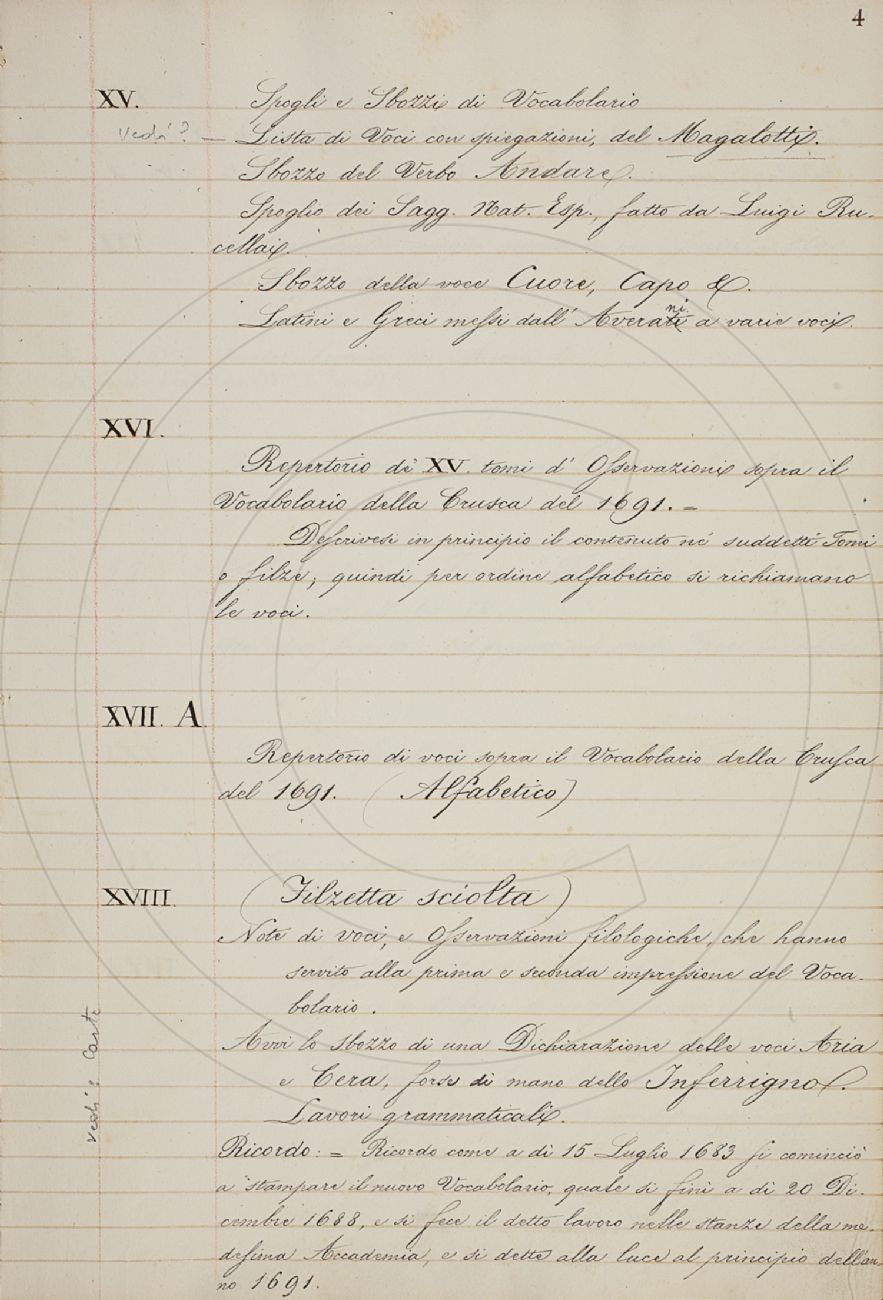 4
XV.
Spogli e Sbozzi di Vocabolario
Vedi? — Lista di Voci con spiegazioni, del Magalotti.
Sbozzo del Verbo Andare.
Spoglio dei Sagg. Nat. Esp., fatto da Luigi Ru-
cellai.
Sbozzo della voce Cuore, Capo &.
ni
Latini e Greci messi dall' Averati a varie voci.
XVI.
Repertorio di XV. tomi d' Osservazioni sopra il
Vocabolario della Crusca del 1691. —
Descrivesi in principio il contenuto né suddetti Tomi
o filze, quindi per ordine alfabetico si richiamano
le voci.
XVII. A.
Repertorio di voci sopra il Vocabolario della Crusca
del 1691. (Alfabetico)
XVIII. (Filzetta sciolta)
Note di voci, e Osservazioni filologiche, che hanno
servito alla prima e seconda impressione del Voca-
bolario.
Avvi lo sbozzo di una Dichiarazione delle voci Aria
e Cera, forse di mano dello Inferrigno.
Lavori grammaticali.
Vedi: Carte
Ricordo: = Ricordo come a dì 15 Luglio 1683 si cominciò
a stampare il nuovo Vocabolario, quale si finì a dì 20 Di-
cembre 1688, e si fece il detto lavoro nelle stanze della me-
desima Accademia, e si dette alla luce al principio dell'an-
no 1691.